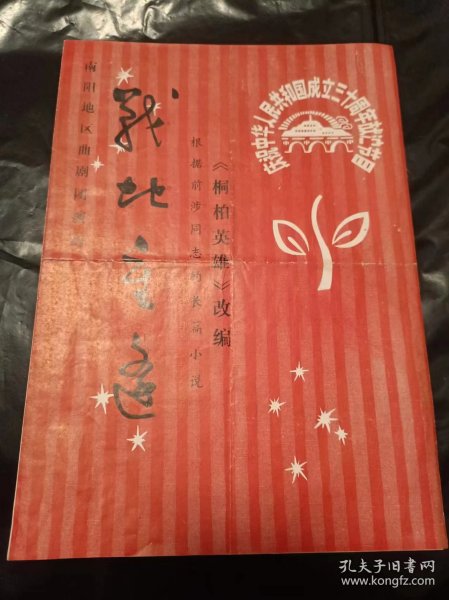 庆祝中华人民共和国成立三十周年献礼节目
《桐柏英雄》改编
根据前涉同志的长篇小说
战地重逢
南阳地区曲剧团
孔夫子旧书网
www.kongfz.com